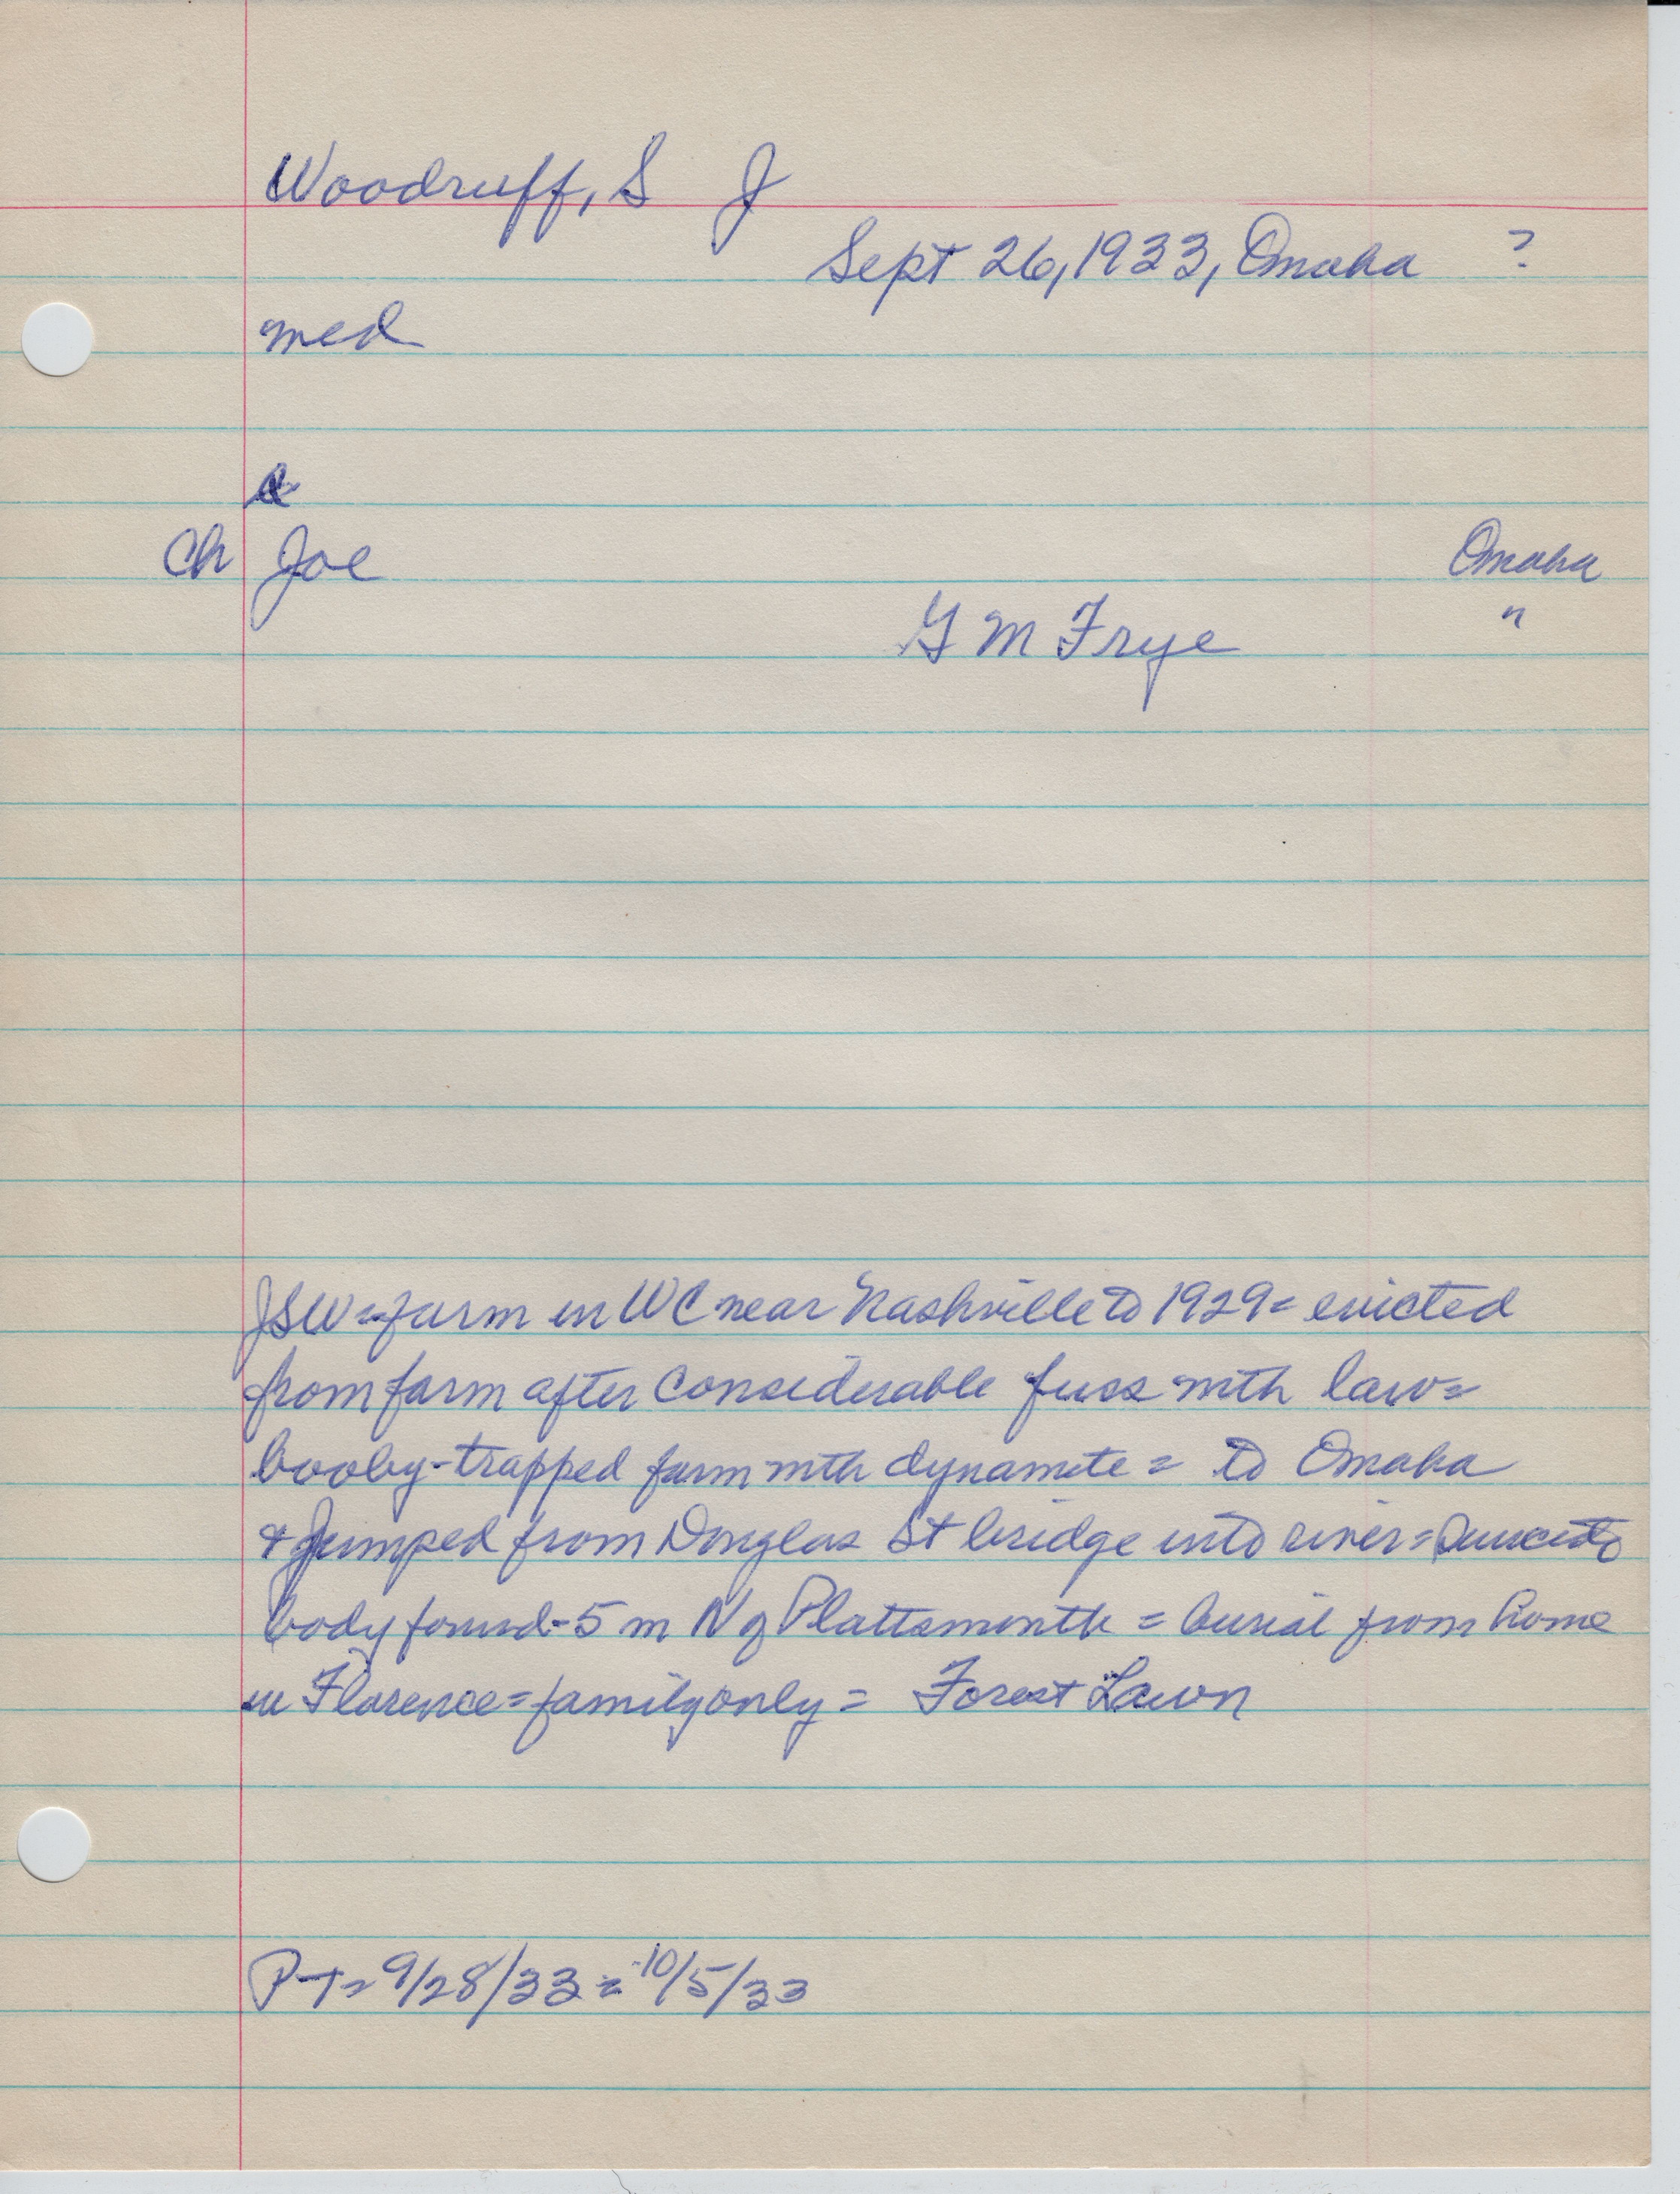 Woodruff, S J
Sept 26, 1933, Omaha ?
med
&
Ch Joe Omaha
G M Frye "
JSW = farm in WC near Nashville to 1929 = evicted
from farm after considerable fuss with law =
booby-trapped farm with dynamite = to Omaha
& jumped from Douglas St bridge into river = suicide
body found - 5 m N of Plattsmouth = burial from home
in Florence = family only = Forest Lawn
PT = 9/28/33 = 10/5/33